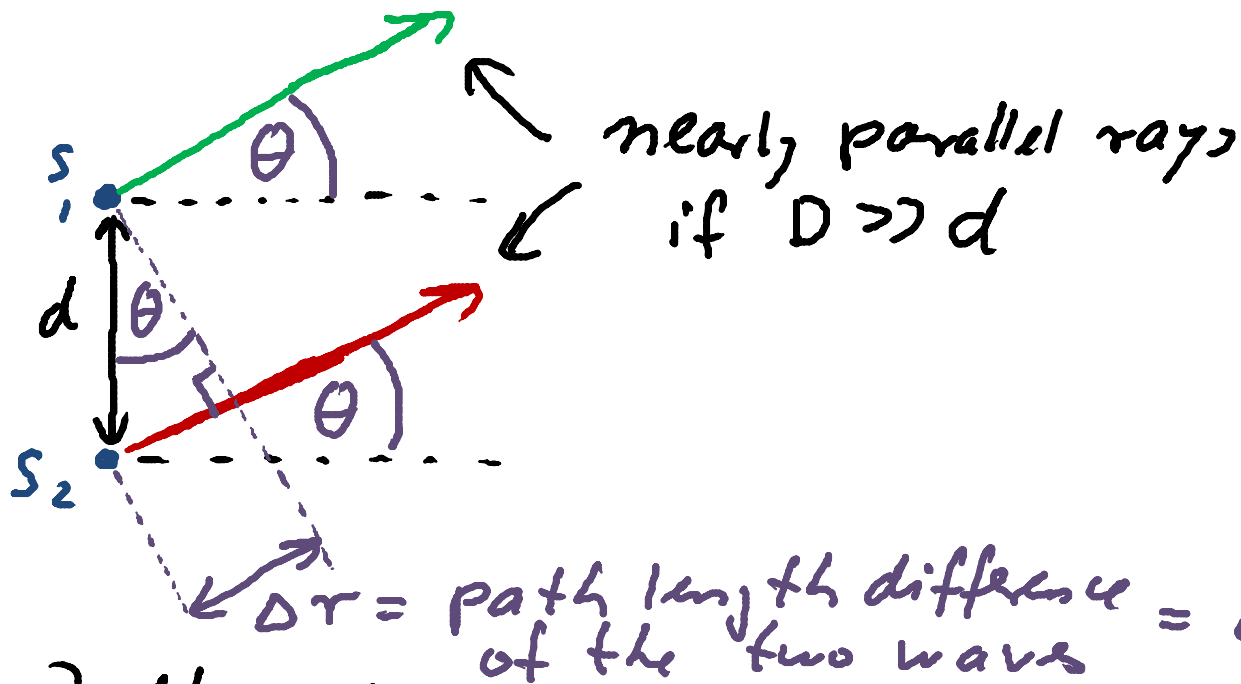 θ
S1
nearly parallel rays
if D >> d
d
θ
θ
S2
Δr = path length difference =
of the two waves